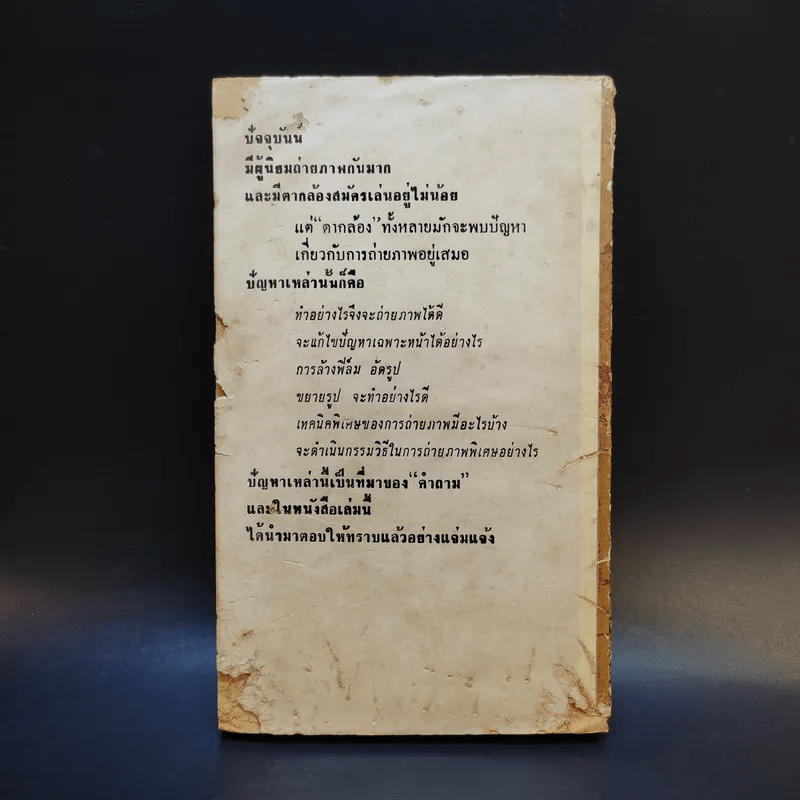 ปัจจุบันนี้
มีผู้นิยมถ่ายภาพกันมาก
และมีตากล้องสมัครเล่นอยู่ไม่น้อย
แต่“ตากล้อง”ทั้งหลายมักจะพบปัญหา
เกี่ยวกับการถ่ายภาพอยู่เสมอ
ปัญหาเหล่านั้นก็คือ
ทำอย่างไรจึงจะถ่ายภาพได้ดี
จะแก้ไขปัญหาเฉพาะหน้าได้อย่างไร
การล้างฟิล์ม อัดรูป
ขยายรูป จะทำอย่างไรดี
เทคนิคพิเศษของการถ่ายภาพมีอะไรบ้าง
จะดำเนินกรรมวิธีในการถ่ายภาพพิเศษอย่างไร
ปัญหาเหล่านี้เป็นที่มาของ“คำถาม”
และในหนังสือเล่มนี้
ได้นำมาตอบให้ทราบแล้วอย่างแจ่มแจ้ง